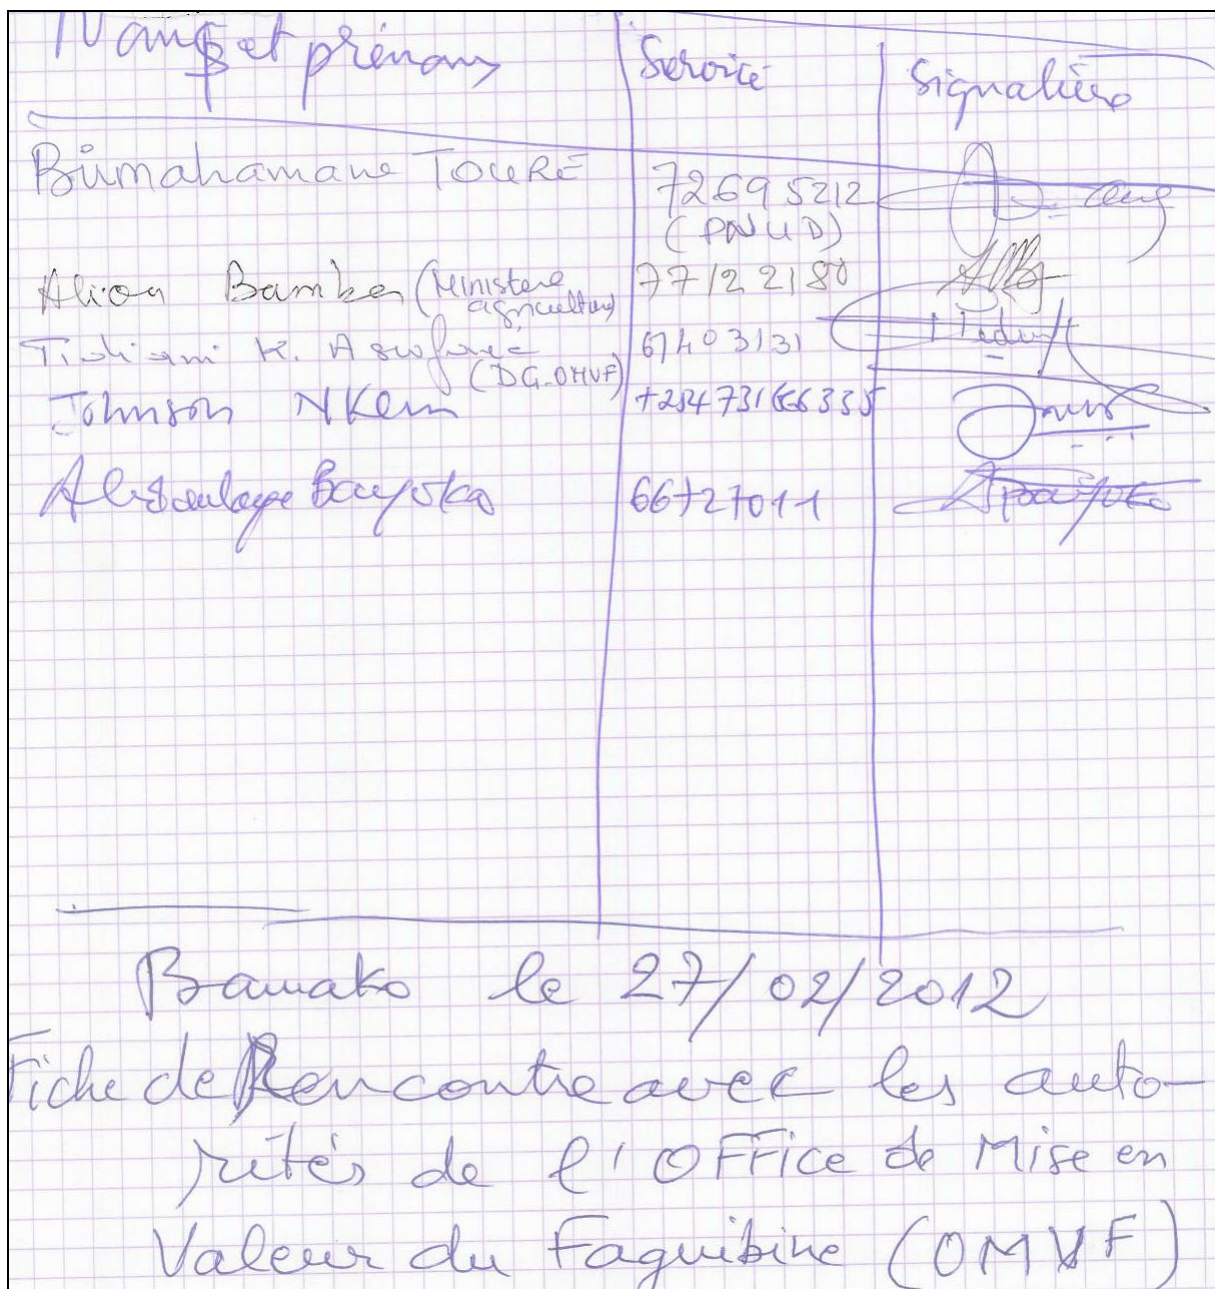 Noms et prénoms Service Signatures
Birmahamane TOURÉ 72695212
(PNUD)
Alioa Bamba (Ministère agriculture) 77122180
Tidiani K. 67403131
(DG-OMVF)
Johnson NKem +254731666335
Abdoulaye Bayoko 66727011
Bamako le 27/02/2012
Fiche de Rencontre avec les auto-
rités de l'OFFice de Mise en
Valeur du Faguibine (OMVF)